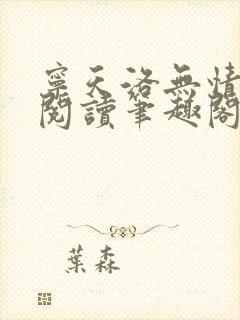 寧天洛無情
閱讀筆趣閣
葉森